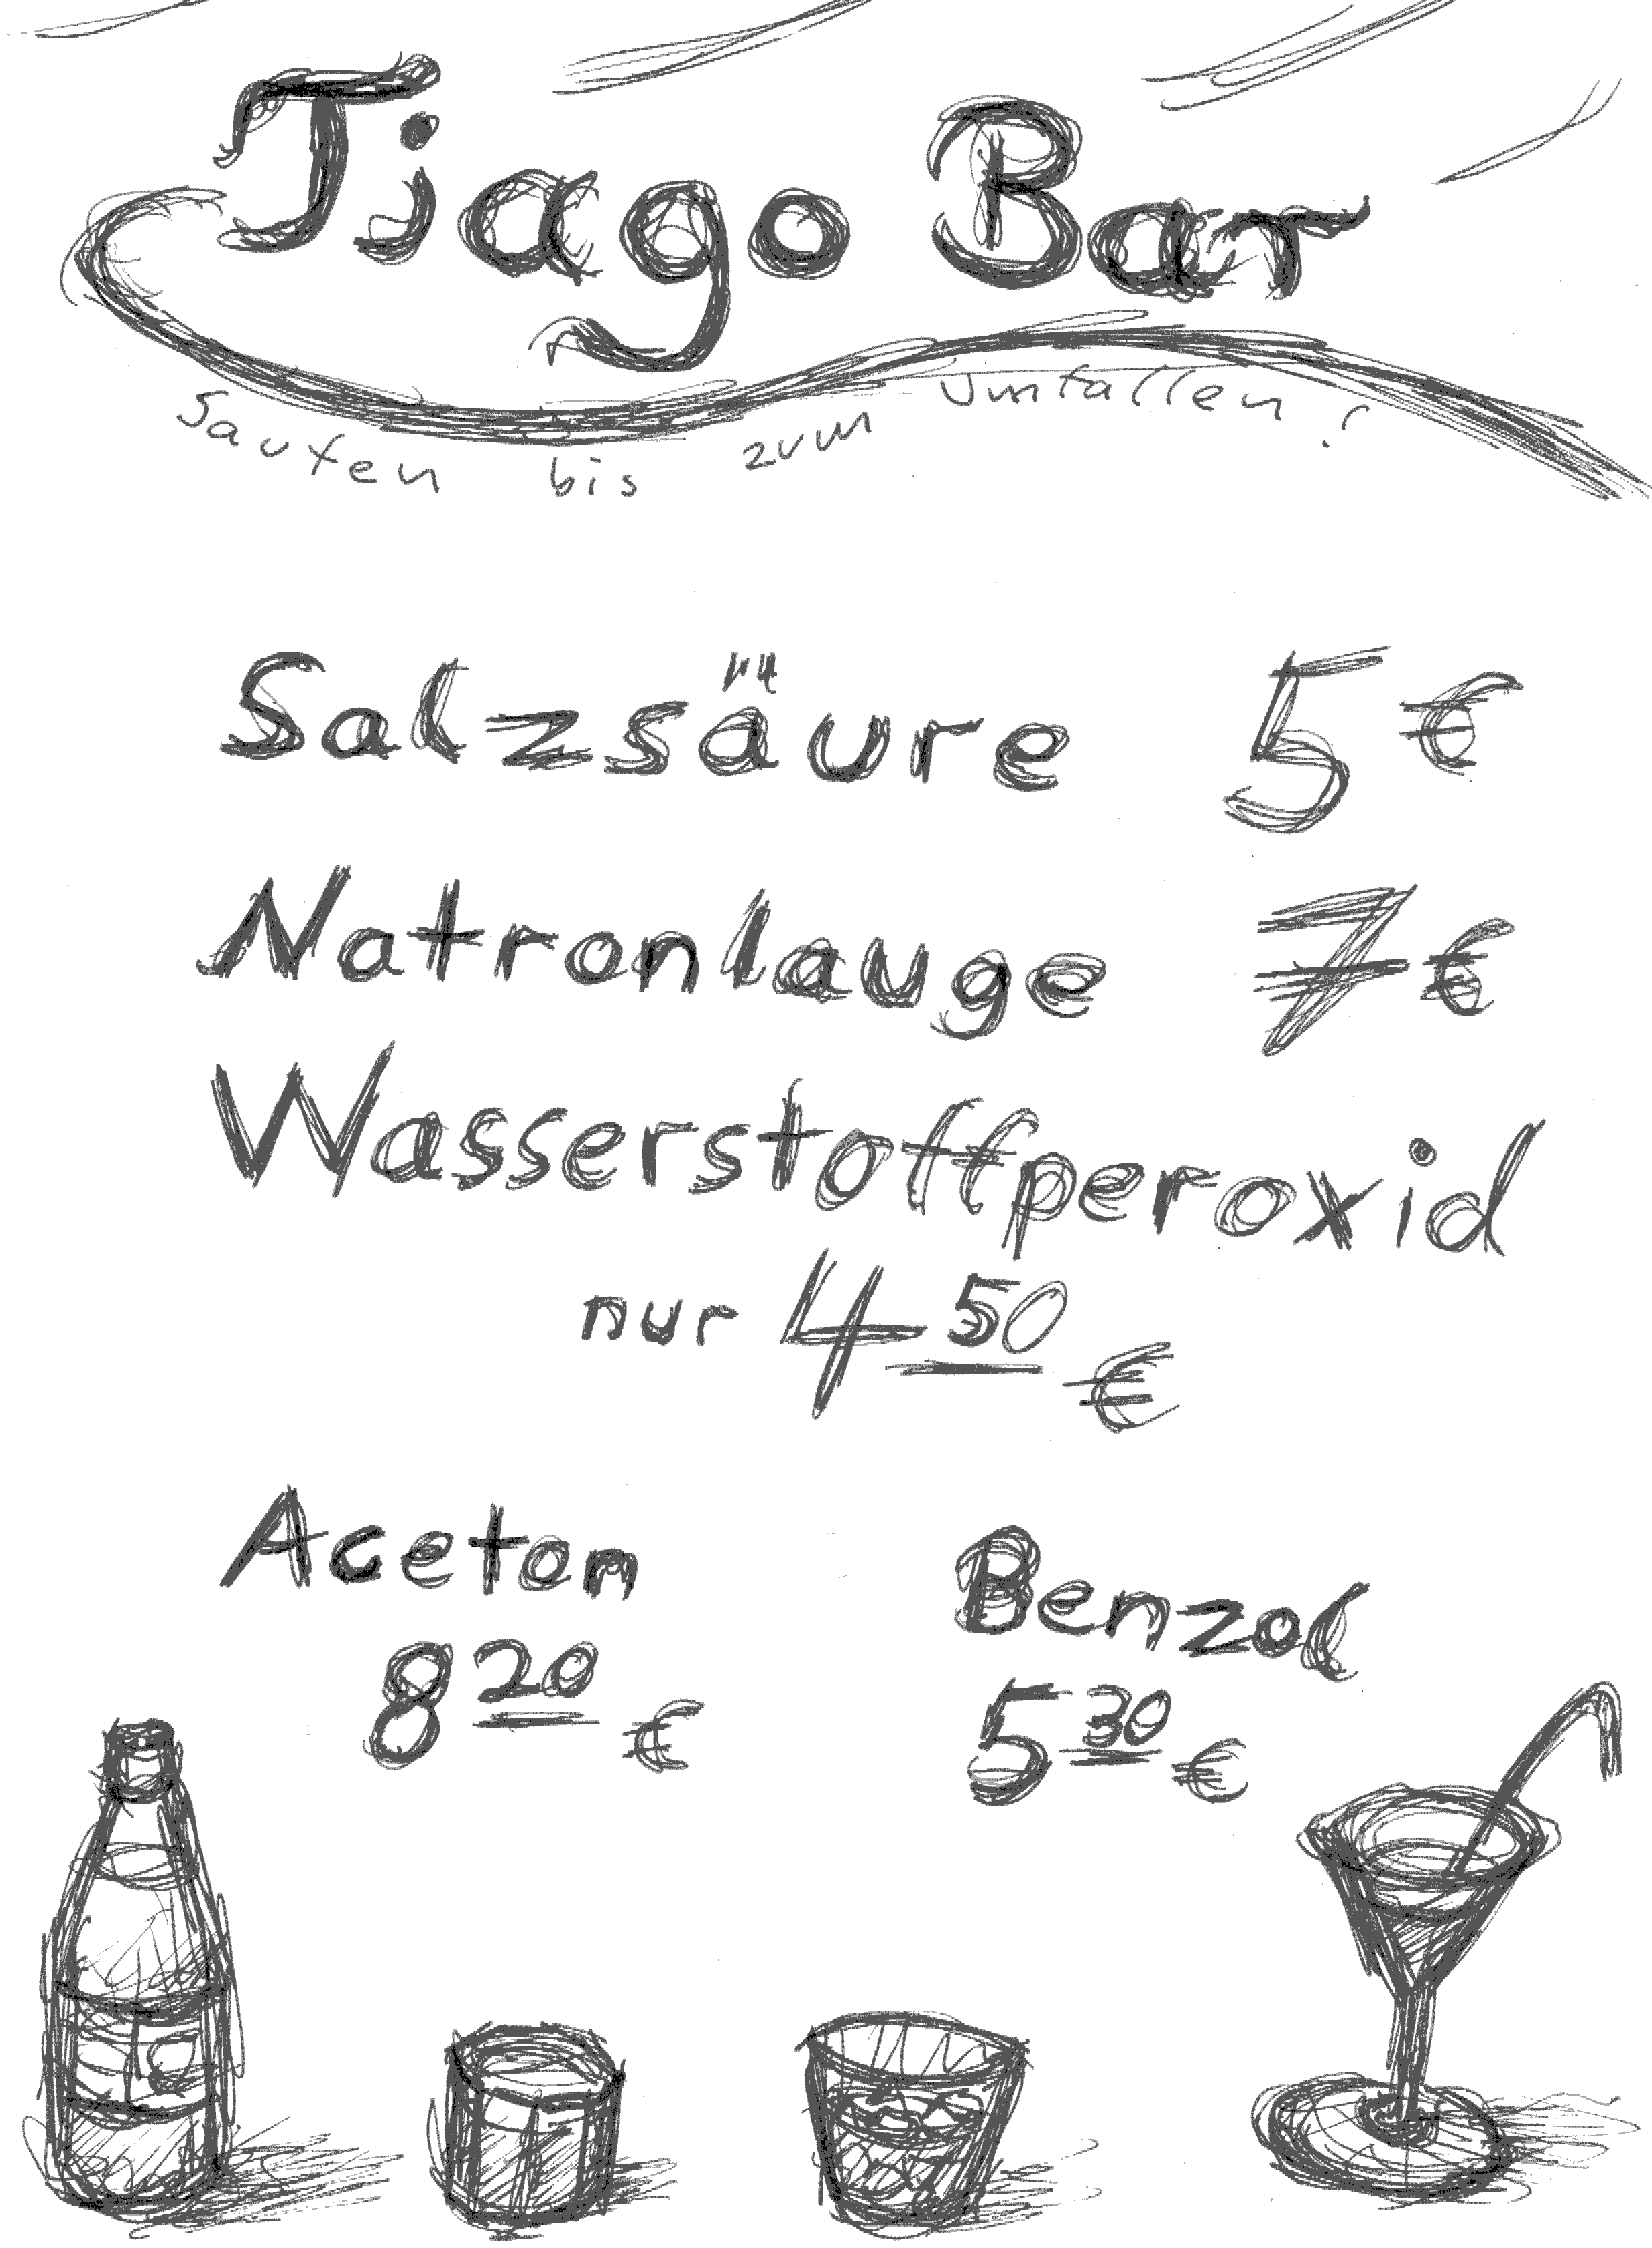 Tiago Bar
Saufen bis zum Umfallen!
Salzsäure 5 €
Natronlauge 7 €
Wasserstoffperoxid
nur 4 50 €
Aceton
8 20 €
Benzol
5 30 €